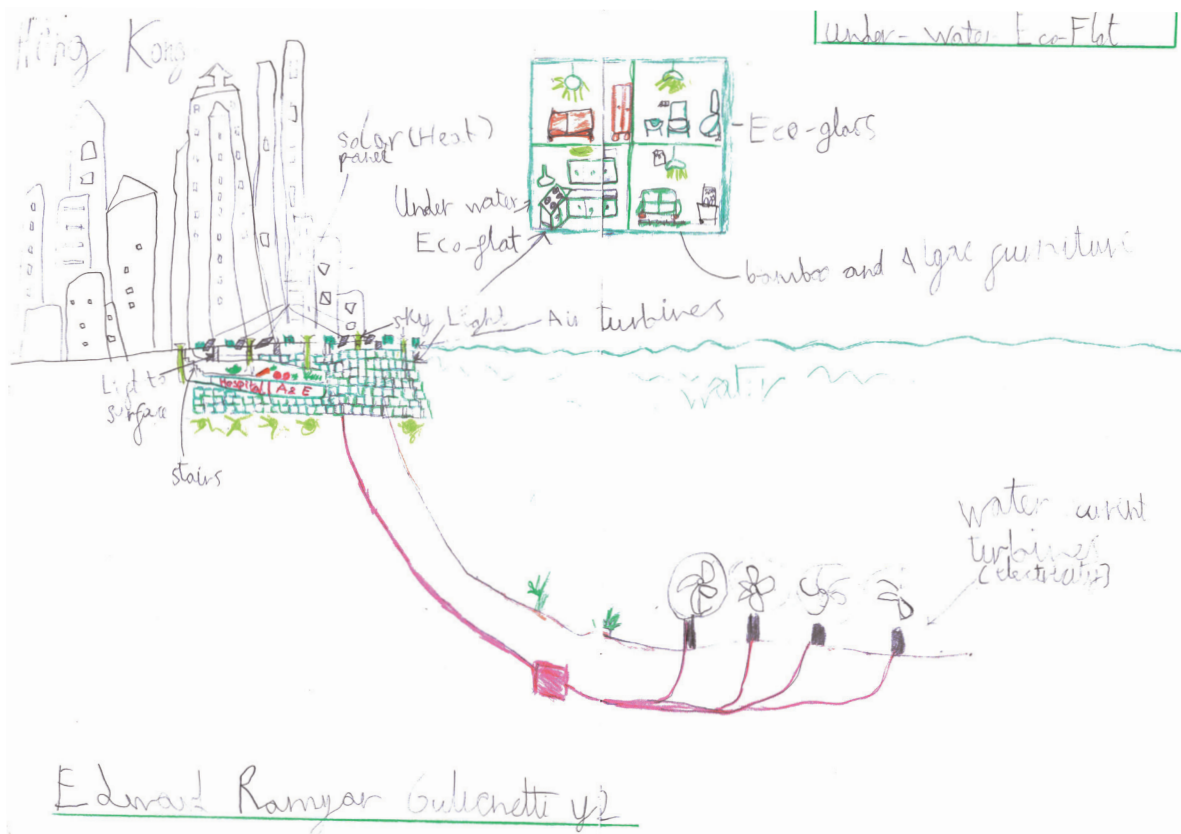 Hong Kong
Under-water Eco-Flat
solar (Heat)
panel
Eco-glass
Under water
Eco-flat
bamboo and Algae furniture
sky Light
Air turbines
Lift to
surface
water
Hospital A & E
stairs
water current
turbines
(electricity)
Edward Ramyar Gulichetti y2